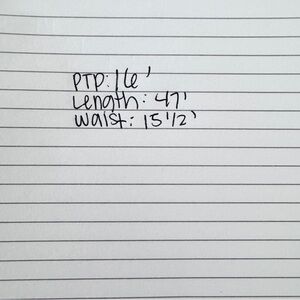 PTP: 16'
Length: 47'
Waist: 15 1/2'